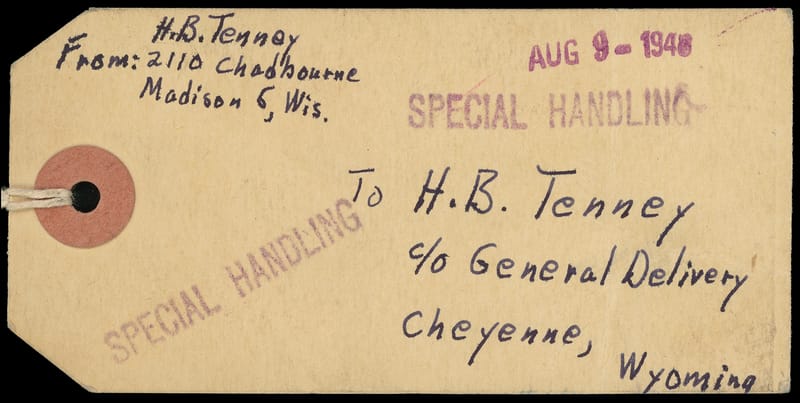 H.B. Tenney
From: 2110 Chadbourne
Madison 5, Wis.
AUG 9 - 1948
SPECIAL HANDLING
To H.B. Tenney
c/o General Delivery
Cheyenne,
Wyoming
SPECIAL HANDLING